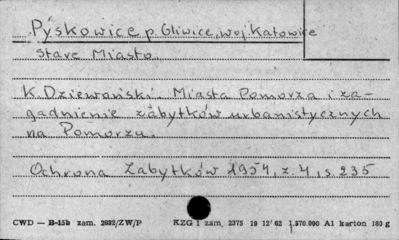 Pyskowice p. Gliwice, woj. Katowice
Stare Miasto.
K. Dziewoński. Miasta Pomorza i za-
gadnienie zabytków urbanistycznych
na Pomorzu.
Ochrona Zabytków 1954, z. 4, s 235
CWD — B-15b zam. 2032/ZW/P KZG 1 zam. 2375 19 12' 62 1.570.000 A1 karton 180 g